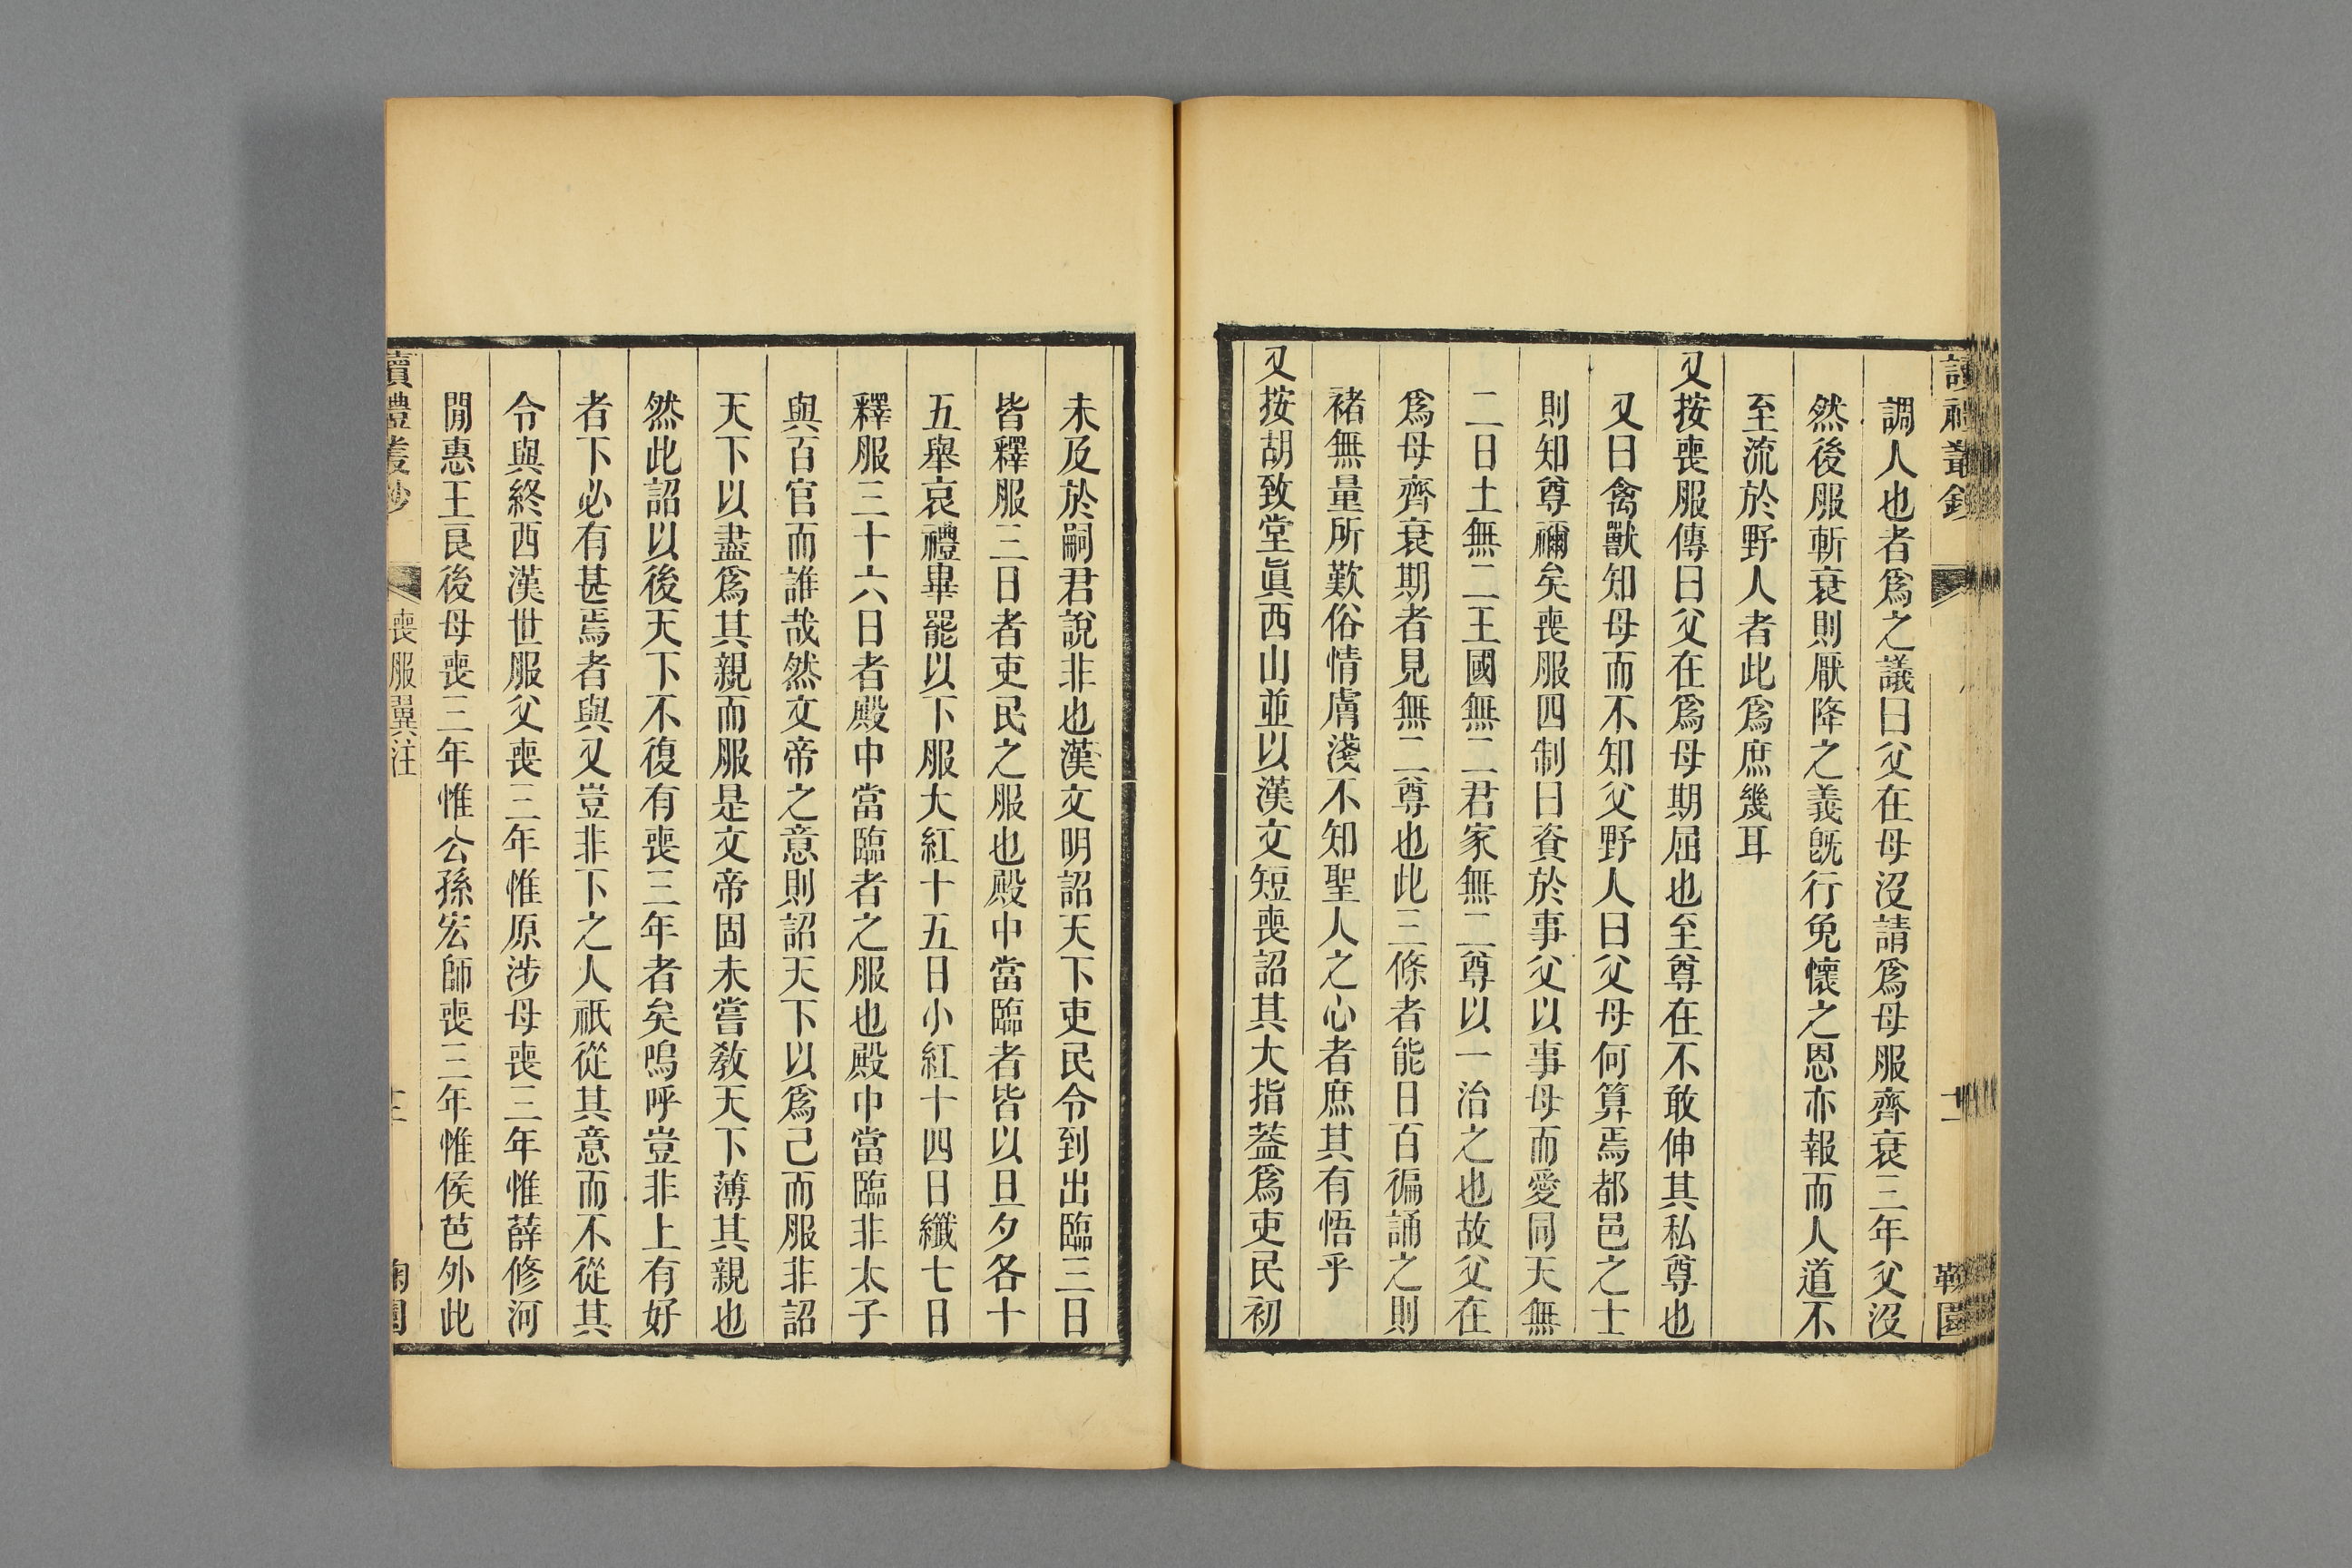 調人也者爲之議曰父在母沒請爲母服齊衰三年父沒
然後服斬衰則厭降之義旣行免懷之恩亦報而人道不
至流於野人者此爲庶幾耳
又按喪服傳曰父在爲母期屈也至尊在不敢伸其私尊也
又曰禽獸知母而不知父野人曰父母何算焉都邑之士
則知尊禰矣喪服四制曰資於事父以事母而愛同天無
二日土無二王國無二君家無二尊以一治之也故父在
爲母齊衰期者見無二尊也此三條者能日百徧誦之則
褚無量所歎俗情膚淺不知聖人之心者庶其有悟乎
又按胡致堂眞西山並以漢文短喪詔其大指葢爲吏民初
未及於嗣君說非也漢文明詔天下吏民令到出臨三日
皆釋服三日者吏民之服也殿中當臨者皆以旦夕各十
五舉哀禮畢罷以下服大紅十五日小紅十四日纖七日
釋服三十六日者殿中當臨者之服也殿中當臨非太子
與百官而誰哉然文帝之意則詔天下以爲己而服非詔
天下以盡爲其親而服是文帝固未嘗敎天下薄其親也
然此詔以後天下不復有喪三年者矣嗚呼豈非上有好
者下必有甚焉者與又豈非下之人祇從其意而不從其
令與終西漢世服父喪三年惟原涉母喪三年惟薛修河
閒惠王良後母喪三年惟公孫宏師喪三年惟侯芭外此
讀禮叢鈔
喪服翼注